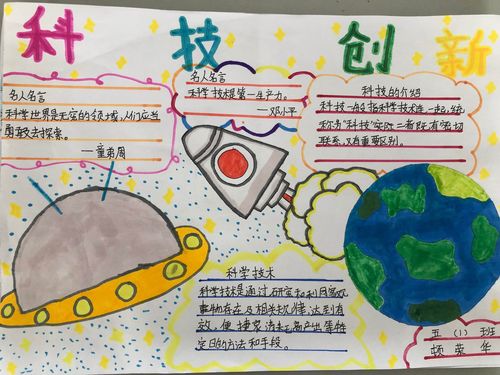 科技创新
名人名言
科学世界是无穷的领域，人们应当
勇敢去探索。
—童第周
名人名言
科学技术是第一生产力。
—邓小平
科技的介绍
科技一般指科学技术连一起，统
称为“科技”实际二者既有密切
联系，又有重要区别。
科学技术
科学技术是通过研究和利用客观
事物存在及相关规律，达到有
效、便捷
定目的方法和手段。
五（1）班
顾荣华